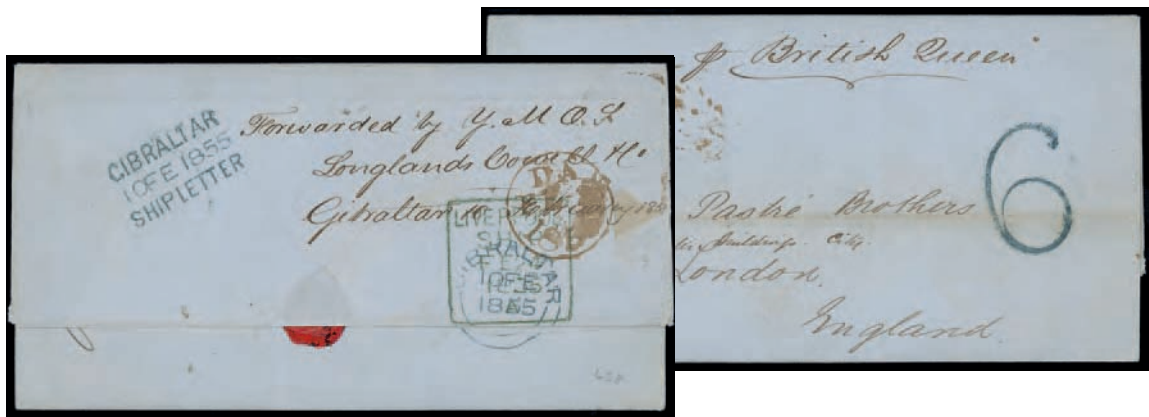 GIBRALTAR
10FE1855
SHIPLETTER
Forwarded by Y. M O. S
Longlands Cowell & Co
Gibraltar 10 February 185
LIVERPOOL
SHIP
GIBRALTAR
10FE
1855
p British Queen
6
Pastré Brothers
Buildings. City.
London.
England.